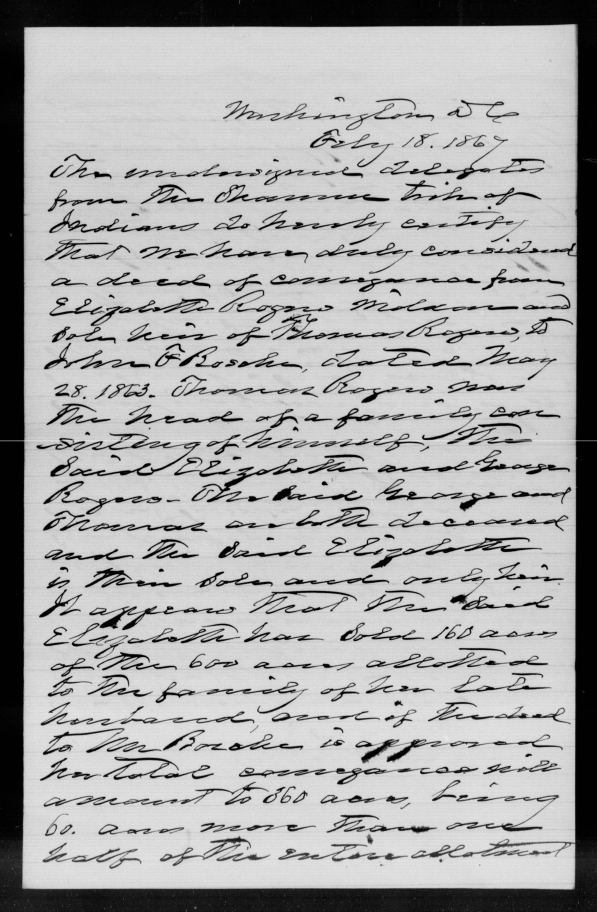 Washington D C
Feby 18. 1867
The undersigned delegates
from the Shawnee tribe of
Indians do hereby certify
that we have duly considered
a deed of conveyance from
Elizabeth Rogers widow and
sole heir of Thomas Rogers, to
John F Boseke, dated May
28. 1863. Thomas Rogers was
the head of a family con
sisting of himself, the
said Elizabeth and George
Rogers - The said George and
Thomas are both deceased
and the said Elizabeth
is their sole and only heir.
It appears that the said
Elizabeth has sold 160 acres
of the 600 acres allotted
to the family of her late
husband, and if the deed
to Mr Boseke is approved
her total conveyance will
amount to 360 acres, being
60. acres more than one
half of the entire allotment